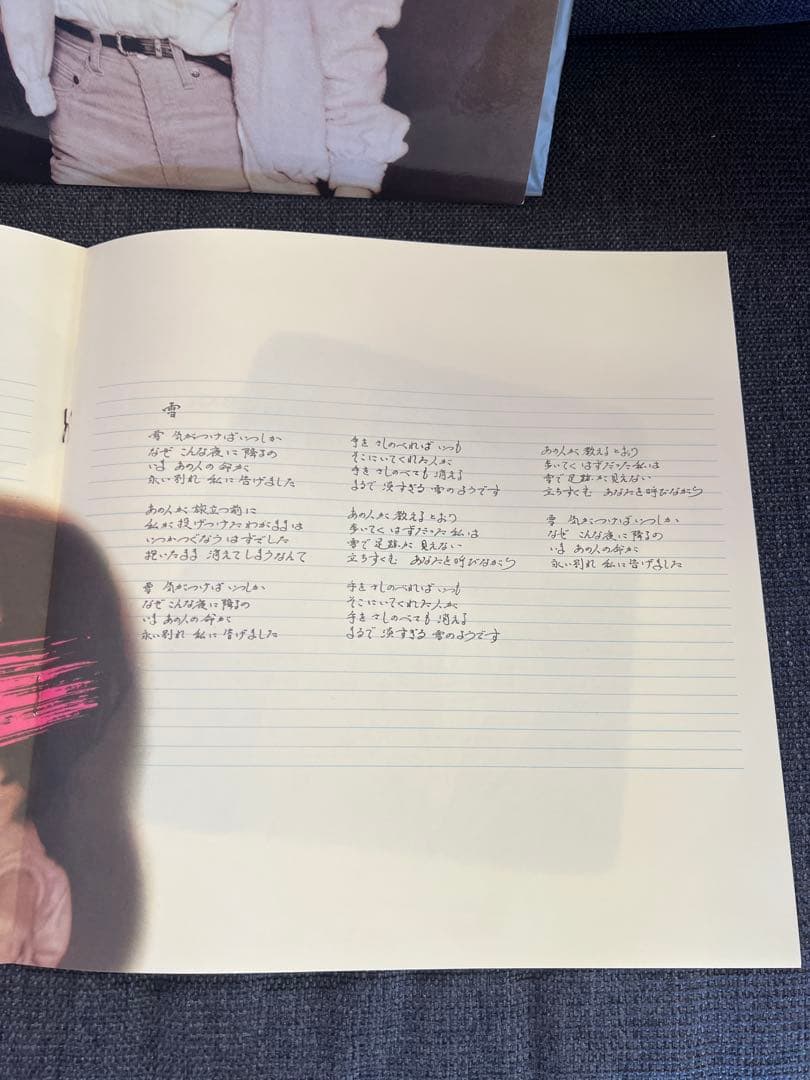 雪
雪 気がつけばいつしか
なぜ こんな夜に降るの
いま あの人の命が
永い別れ 私に告げました
あの人が 旅立つ前に
私が 投げつけたわがままは
いつかつぐなう はずでした
抱いたまま 消えてしまうなんて
雪 気がつけばいつしか
なぜ こんな夜に降るの
いま あの人の命が
永い別れ 私に告げました
手を さしのべれば いつも
そこにいてくれた人が
手を さしのべても 消える
まるで 淡すぎる 雪のようです
あの人が 教えるとおり
歩いてく はずだった 私は
雪で 足跡が 見えない
立ちすくむ あなたを呼びながら
手を さしのべれば いつも
そこにいてくれた人が
手を さしのべても 消える
まるで 淡すぎる 雪のようです
あの人が 教えるとおり
歩いてく はずだった 私は
雪で 足跡が 見えない
立ちすくむ あなたを呼びながら
雪 気がつけばいつしか
なぜ こんな夜に降るの
いま あの人の命が
永い別れ 私に告げました